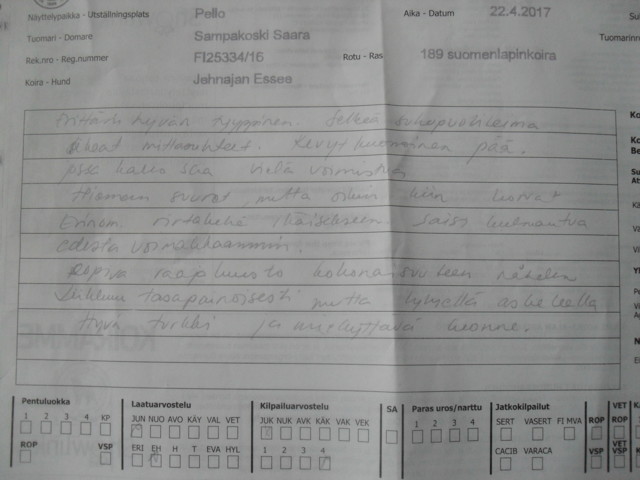 Näyttelypaikka - Utställningsplats Pello Aika - Datum 22.4.2017
Tuomari - Domare Sampakoski Saara
Rek.nro - Reg.nummer FI25334/16 Rotu - Ras 189 suomenlapinkoira
Koira - Hund Jehnajan Essee
Erittäin hyvän tyyppinen. Selkeä sukupuolileima
oikeat mittasuhteet. Kevyt kuonoinen pää.
kallo saa vielä voimistua
Hieman suuret, mutta oikein korvat
Erinom. rintakehä ikäisekseen. Saisi kulmautua
edestä voimakkaammin.
Sopiva raajaluusto kokonaisuuteen nähden
Liikkuu tasapainoisesti mutta lyhyellä askeleella
Hyvä turkki ja miellyttävä luonne.
Pentuluokka Laatuarvostelu Kilpailuarvostelu SA Paras uros/narttu Jatkokilpailut
1 2 3 4 KP JUN NUO AVO KÄY VAL VET JUK NUK AVK KÄK VAK VEK 1 2 3 4 SERT VASERT FI MVA ROP VET ROP
ROP VSP ERI EH H T EVA HYL 1 2 3 4 CACIB VARACA VSP VET VSP